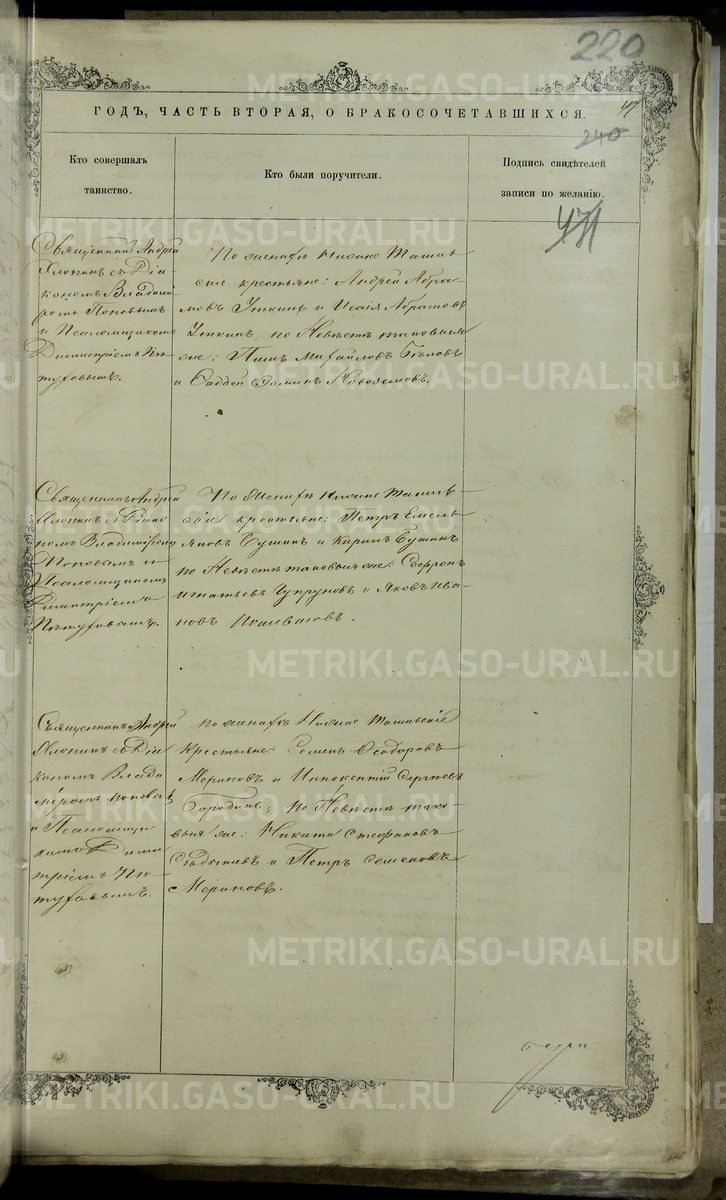 220
47
ГОДЪ, ЧАСТЬ ВТОРАЯ, О БРАКОСОЧЕТАВШИХСЯ.
240
Кто совершалъ
таинство.
Кто были поручители.
Подпись свидѣтелей
записи по желанію.
471
Священникъ Андрей
Хлопинъ съ Діа
кономъ Владимі
ромъ Поповымъ
и Псаломщикомъ
Димитріемъ Пѣ
туховымъ.
По женихѣ Нижне Тагиль
скіе крестьяне: Андрей Абра
мовъ Уткинъ и Исаія Абрамовъ
Уткинъ, по Невѣстѣ таковыя
же: Пимъ Михайловъ Бѣловъ
и Фаддей Фоминъ
Священникъ Андрей
Хлопинъ съ Діако
номъ Владиміромъ
Поповымъ и
Псаломщикомъ
Димитріемъ
Пѣтуховымъ.
По Женихѣ Нижне Тагиль
скіе крестьяне: Петръ Емель
яновъ Бушинъ и Карпъ Бушинъ
по Невѣстѣ таковыя же: Софронъ
Игнатьевъ Чупруновъ и Яковъ Ива
новъ
Священникъ Андрей
Хлопинъ съ Діа
кономъ Влади
міромъ Поповымъ
и Псаломщи
комъ Дими
тріемъ Пѣ
туховымъ.
По женихѣ Нижне Тагильскіе
Крестьяне: Семенъ Ѳеодоровъ
Мериновъ и Иннокентій Сергѣевъ
Бородинъ; по Невѣстѣ тако
выя же: Никита Стефановъ
и Петръ Семеновъ
Мериновъ.
METRIKI.GASO-URAL.RU